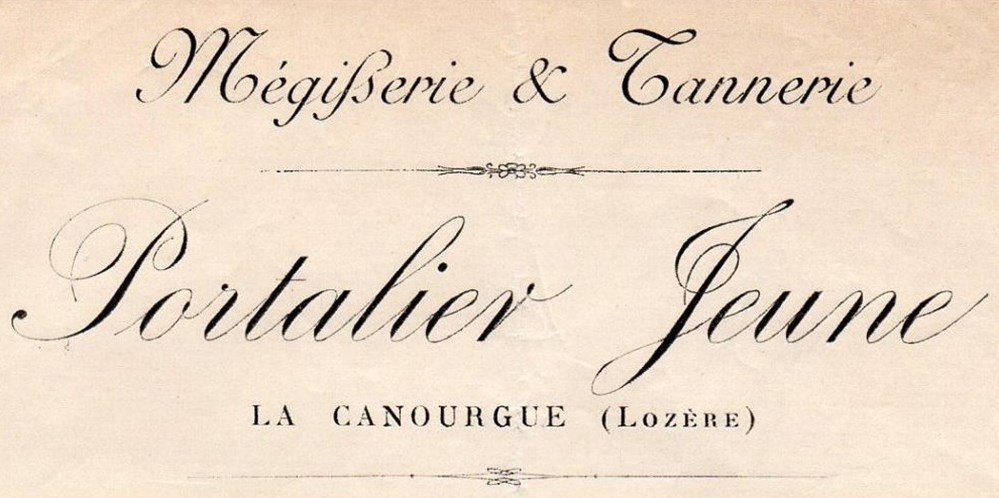 Mégisserie & Tannerie
Portalier Jeune
LA CANOURGUE (LOZÈRE)